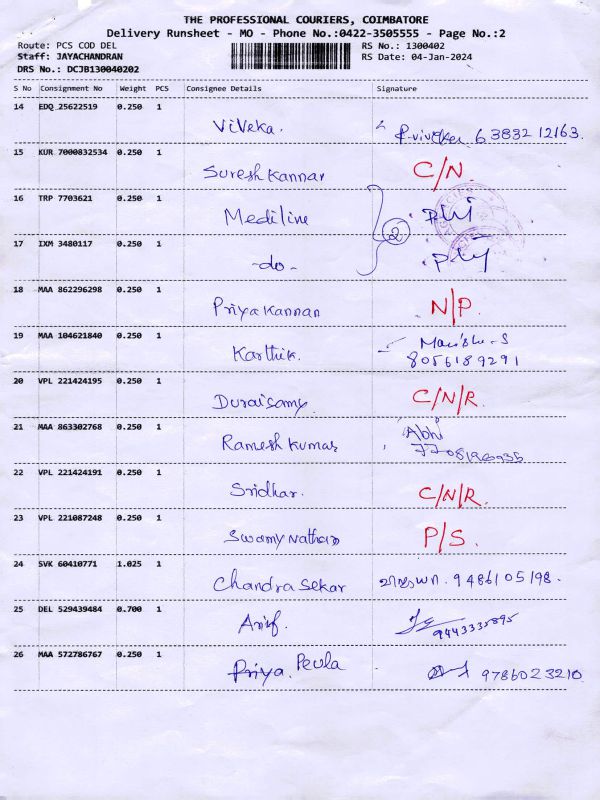 THE PROFESSIONAL COURIERS, COIMBATORE
Delivery Runsheet - MO - Phone No.:0422-3505555 - Page No.:2
Route: PCS COD DEL RS No.: 1300402
Staff: JAYACHANDRAN RS Date: 04-Jan-2024
DRS No.: DCJB130040202
S No Consignment No Weight PCS Consignee Details Signature
14 EDQ 25622519 0.250 1
Viveka. 6383212163.
15 KUR 7000832534 0.250 1
Suresh Kannan C/N.
16 TRP 7703621 0.250 1
Mediline
2
17 IXM 3480117 0.250 1
-do-
18 MAA 862296298 0.250 1
Priya Kannan N/P.
19 MAA 104621840 0.250 1
Karthik.
8056189291
20 VPL 221424195 0.250 1
Duraisamy. C/N/R.
21 MAA 863302768 0.250 1
Ramesh Kumar Abhi
22 VPL 221424191 0.250 1
Sridhar. C/N/R.
23 VPL 221087248 0.250 1
Swamy Nathan P/S.
24 SVK 60410771 1.025 1
Chandra Sekar 9486105198.
25 DEL 529439484 0.700 1
Arif.
9443335895
26 MAA 572786767 0.250 1
Priya. 9786023210